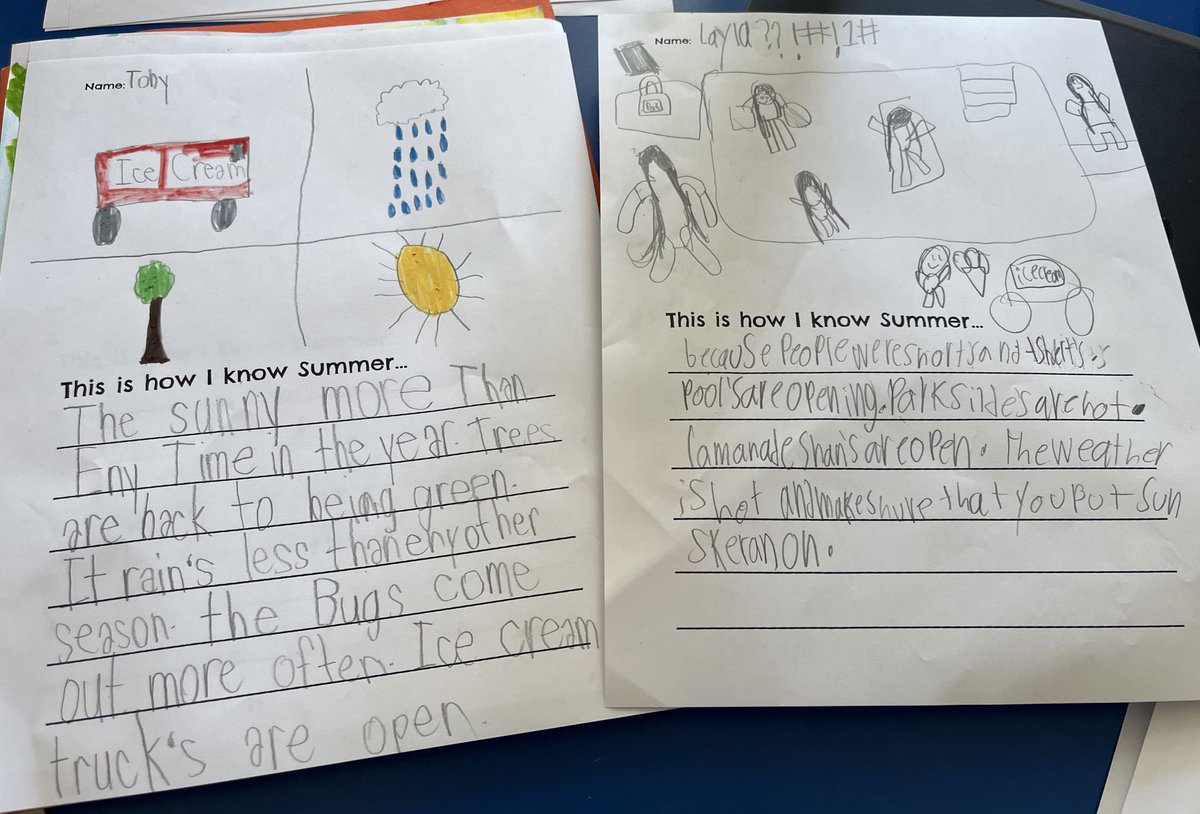 Name: Toby
Ice Cream
This is how I know Summer...
The sunny more Than
Eny Time in the year. Trees
are back to being green.
It rain's less than eny other
season. the Bugs come
out more often. Ice cream
truck's are open.
Name: Layla?? !##!1#
icecream
This is how I know Summer...
because People were shorts and t-shierts
pool's are opening. Park slides are hot.
lamanade shan's are open. The weather
is hot and make shure that you put sun
skeran on.